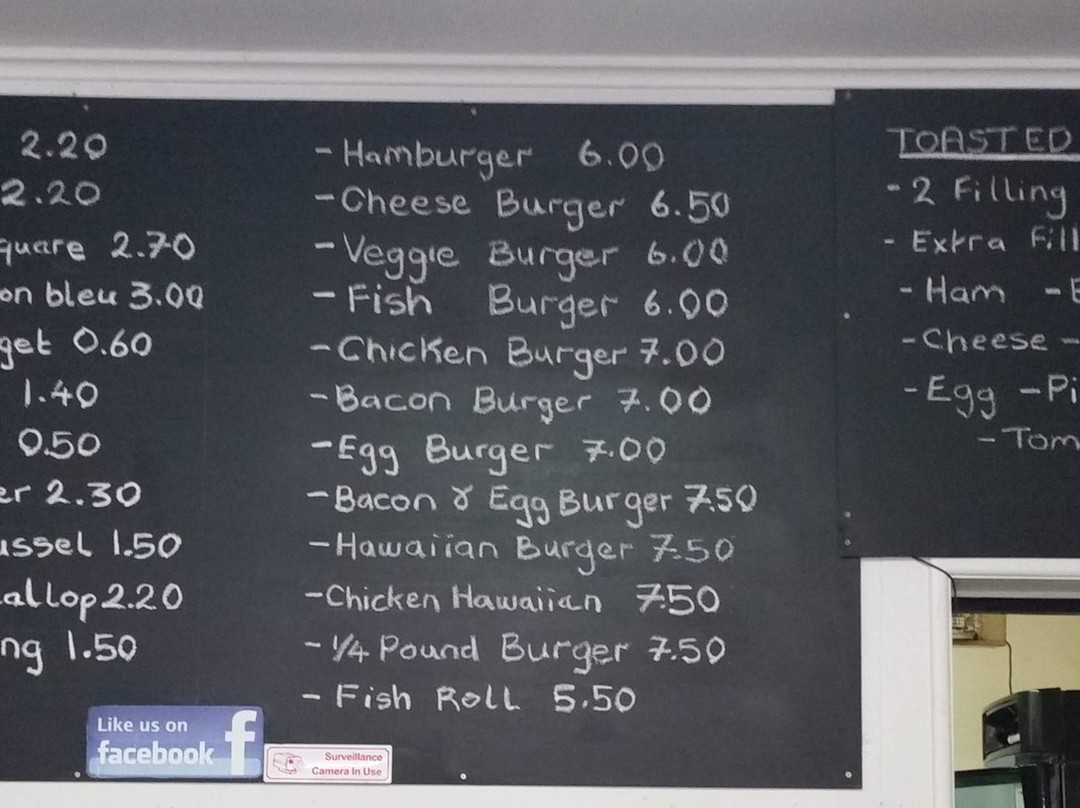 2.20
2.20
quare 2.70
on bleu 3.00
get 0.60
1.40
0.50
er 2.30
ussel 1.50
allop 2.20
ng 1.50
- Hamburger 6.00
- Cheese Burger 6.50
- Veggie Burger 6.00
- Fish Burger 6.00
- Chicken Burger 7.00
- Bacon Burger 7.00
- Egg Burger 7.00
- Bacon & Egg Burger 7.50
- Hawaiian Burger 7.50
- Chicken Hawaiian 7.50
- 1/4 Pound Burger 7.50
- Fish Roll 5.50
TOASTED
- 2 Filling
- Extra Fill
- Ham - E
- Cheese -
- Egg - Pi
- Tom
Like us on
facebook f
Surveillance
Camera In Use